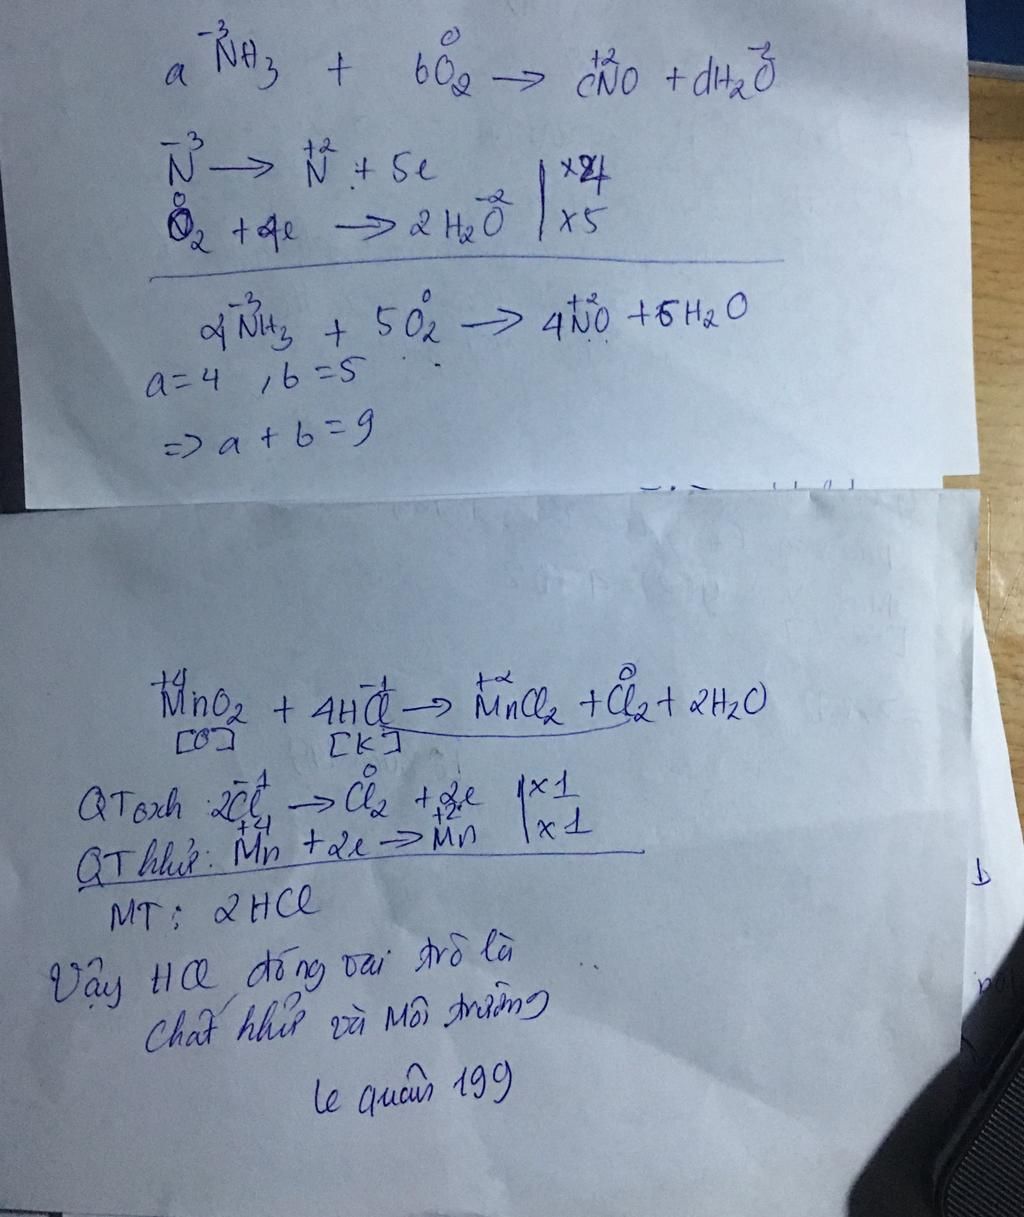 a N⁻³H₃ + bO₂⁰ → cN⁺²O + dH₂O⁻²
N⁻³ → N⁺² + 5e | x4
O₂⁰ + 4e → 2H₂O⁻² | x5
4N⁻³H₃ + 5O₂⁰ → 4N⁺²O + 6H₂O
a = 4 , b = 5
=> a + b = 9
Mn⁺⁴O₂ + 4HCl⁻¹ → Mn⁺²Cl₂ + Cl₂⁰ + 2H₂O
[O] [K]
QT oxh : 2Cl⁻¹ → Cl₂⁰ + 2e | x1
QT khử: Mn⁺⁴ + 2e → Mn⁺² | x1
MT : 2HCl
Vậy HCl đóng vai trò là
chất khử và môi trường
le quân 199